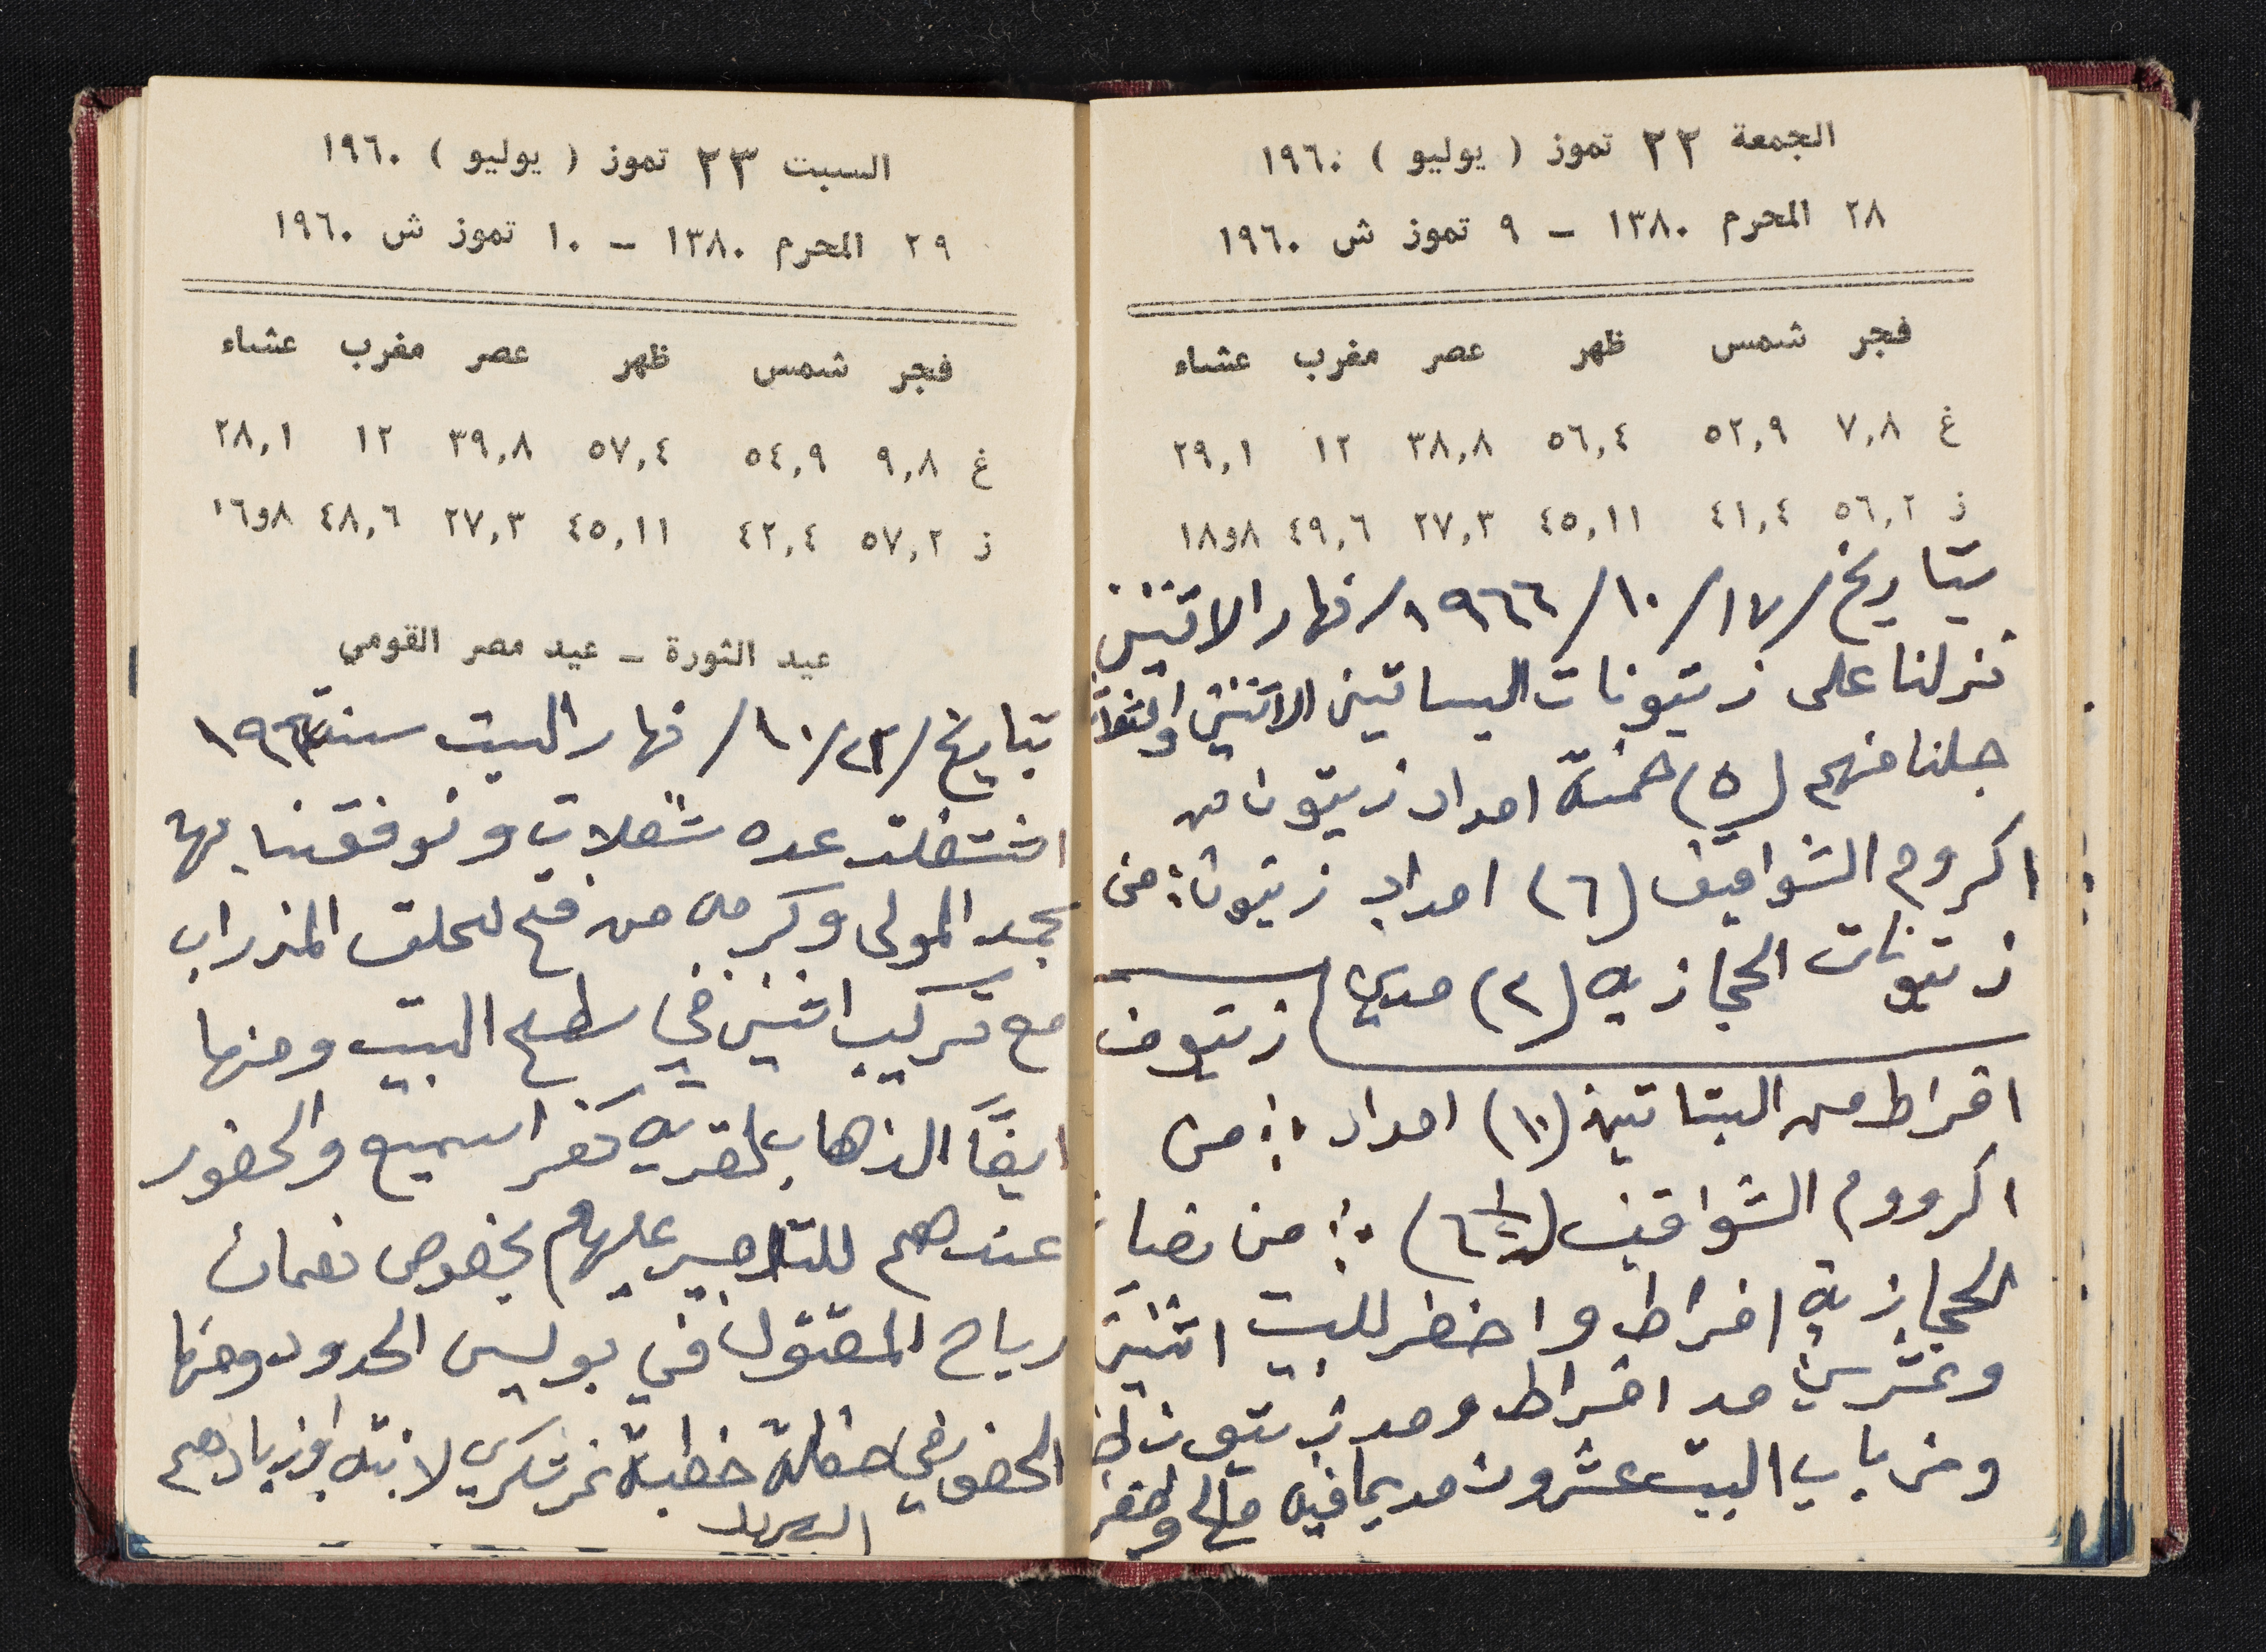 الجمعة ٢٢ تموز ( يوليو ) ١٩٦٠
٢٨ المحرم ١٣٨٠ – ٩ تموز ش ١٩٦٠
فجر شمس ظهر عصر مغرب عشاء
غ ٧,٨ ٥٢,٩ ٥٦,٤ ٣٨,٨ ١٢ ٢٩,١
ز ٥٦,٢ ٤١,٤ ٤٥,١١ ٢٧,٣ ٤٩,٦ ٨و١٨
بتاريخ/١٧/١٠/١٩٦٦/نهار الاثنين
نزلنا على زيتونات البساتين الاثنين
جلنا منهم (٥) خمسة امداد زيتون من
اكروم الشواقيف (٦) امداد زيتون: من
زيتونات الحجازيه (٢) مدين زيتون
افراط من البتاتين (١٠) امداد :: من
اكرووم الشواقيف (٦١/٢) :: من
الحجازية افراط واخضر للبيت اثنين
وعشرين مد افراط ومد زيتون
ومن باب البيت عشرون مد بما فيه
السبت ٢٣ تموز ( يوليو ) ١٩٦٠
٢٩ المحرم ١٣٨٠ – ١٠ تموز ش ١٩٦٠
فجر شمس ظهر عصر مغرب عشاء
غ ٩,٨ ٥٤,٩ ٥٧,٤ ٣٩,٨ ١٢ ٢٨,١
ز ٥٧,٢ ٤٢,٤ ٤٥,١١ ٢٧,٣ ٤٨,٦ ٨و١٦
عيد الثورة – عيد مصر القومي
بتاريخ/٢٢/١٠/نهار السبت سنة
اشتغلت عده شغلات وتوفقنا بها
بحمد المولى وكرمه من فتح لحلق المزراب
مع تركيب اثنين في سطح البيت ومنها
ايضاً الذهاب لقريه كفر اسميع والحضور
عندهم عليهم بخصوص نعمان
رباح المقتول في بوليس الحدود ومنها
الحضور في حفلة خطبة نمر شكري لابنة